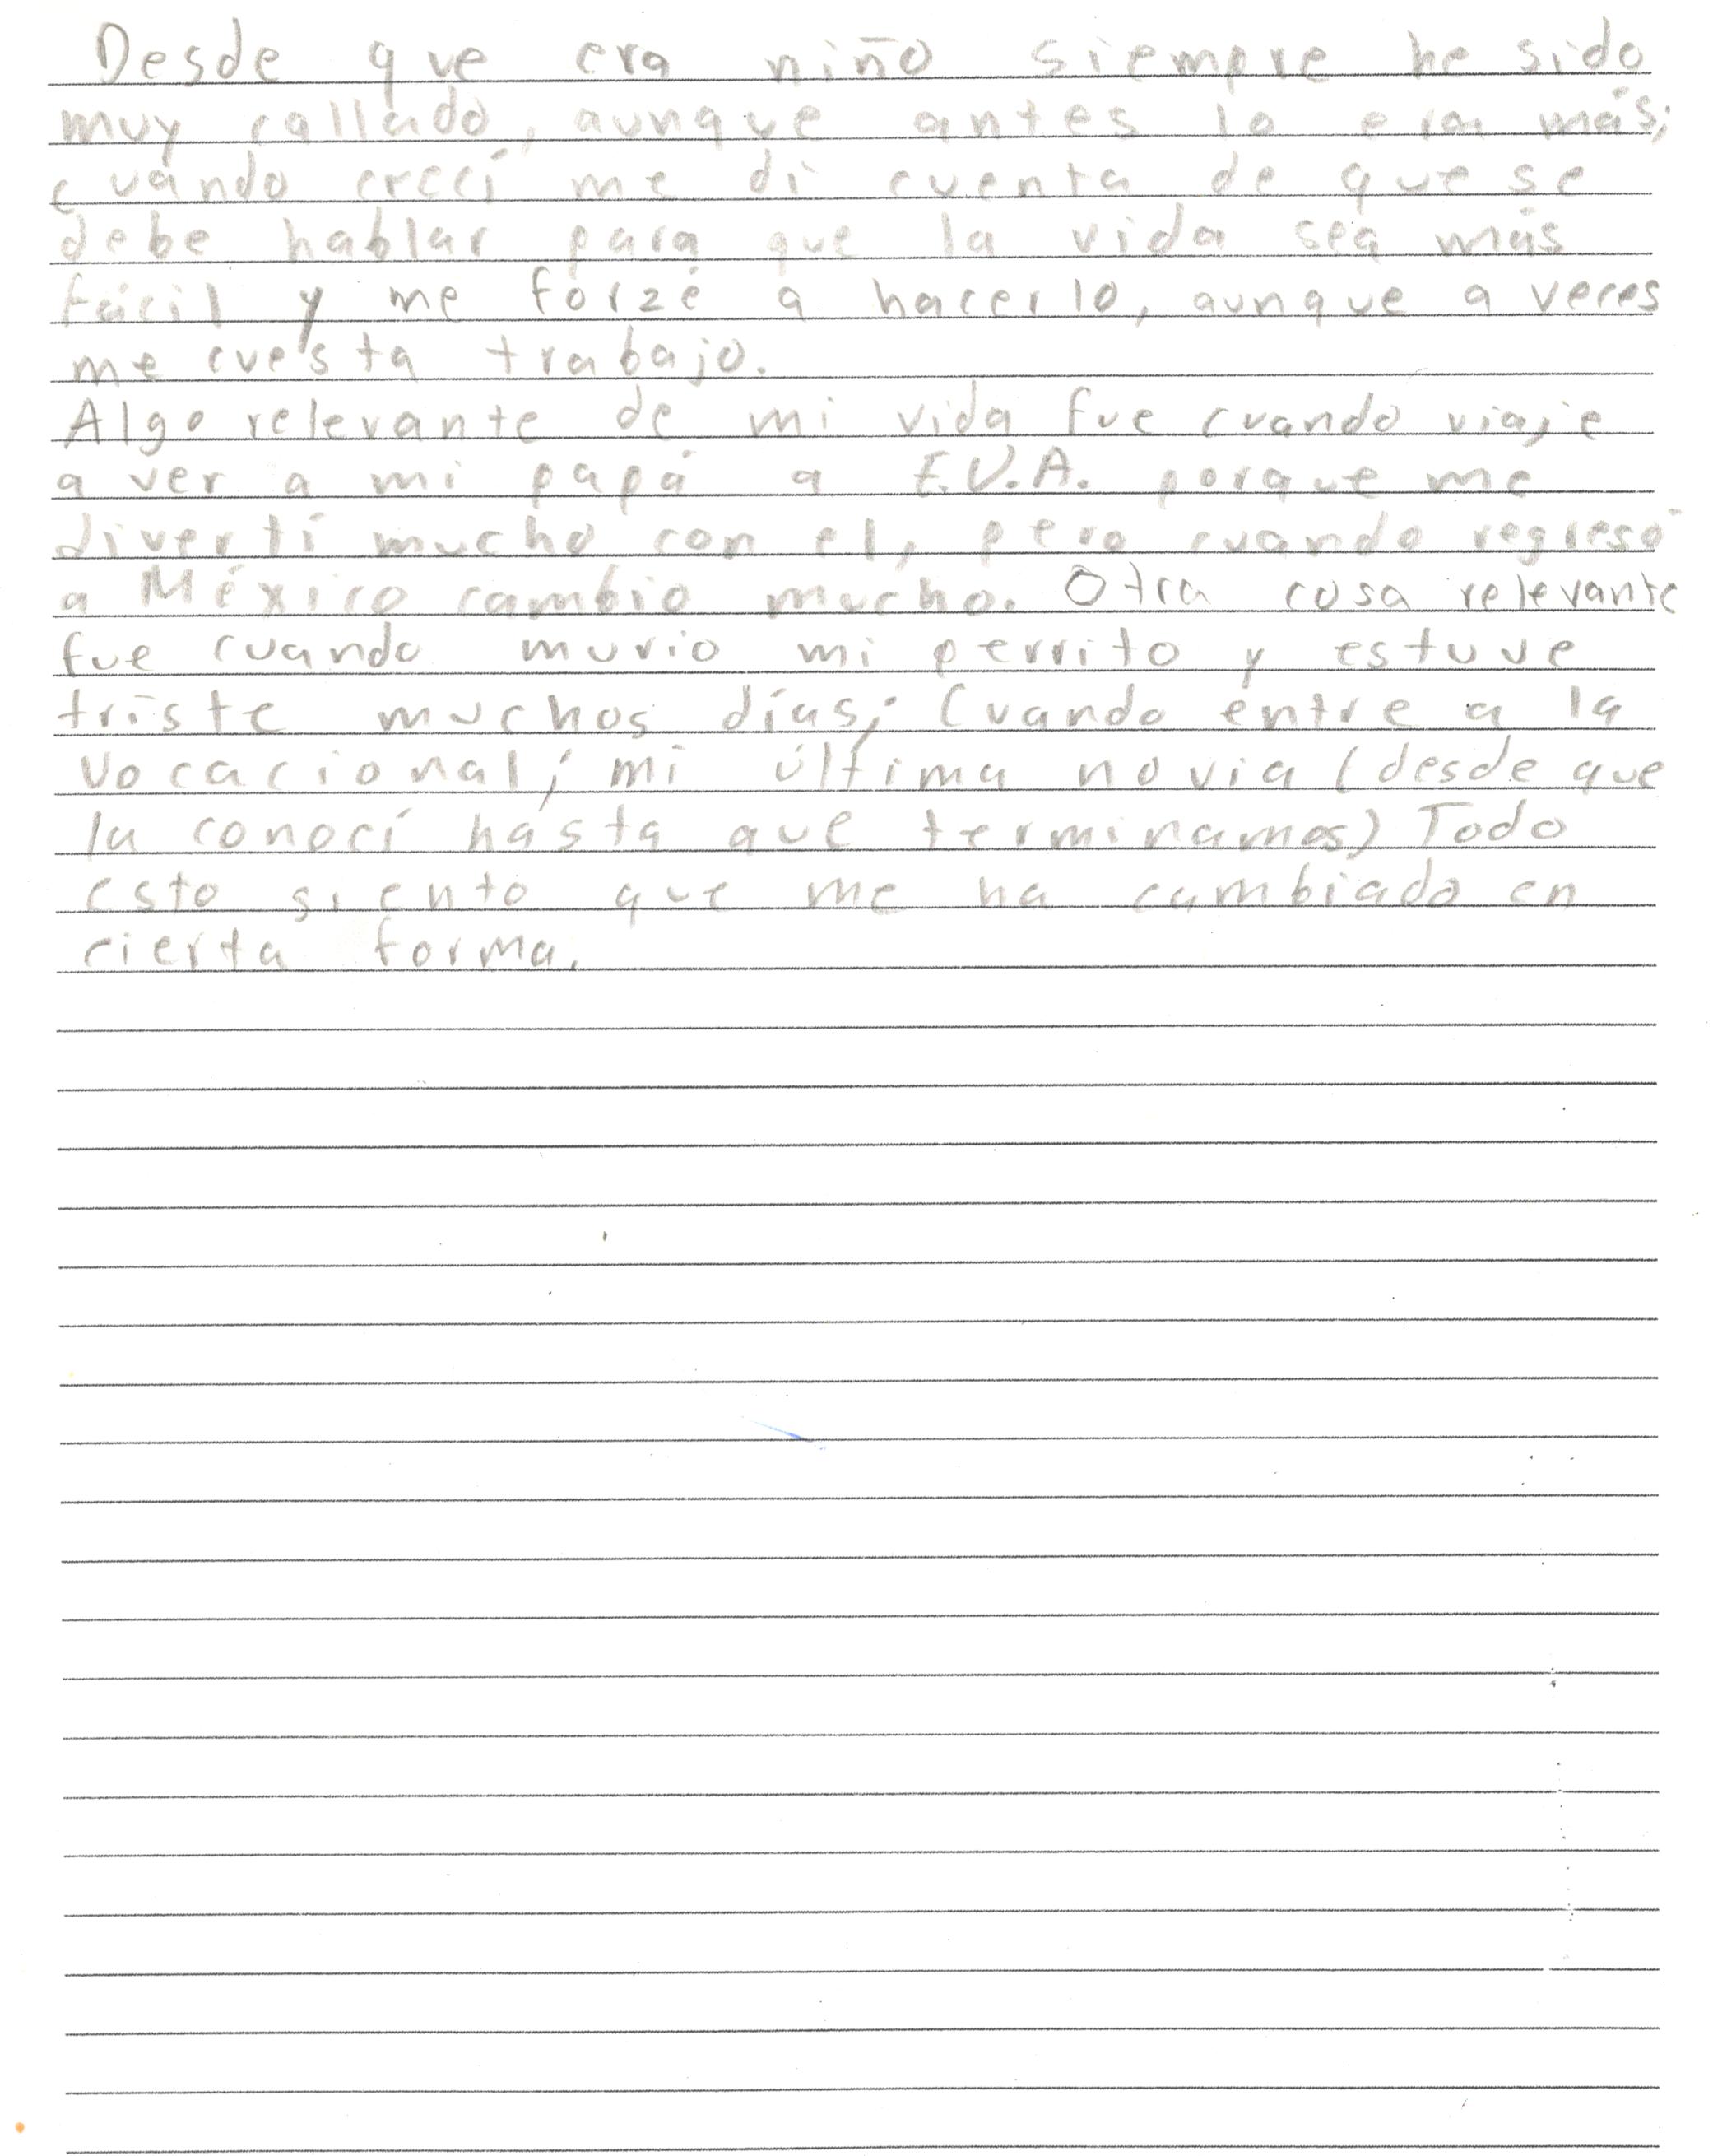 Desde que era niño siempre he sido
muy callado, aunque antes lo era más;
cuándo crecí me di cuenta de que se
debe hablar para que la vida sea más
fácil y me forzé a hacerlo, aunque a veces
me cuesta trabajo.
Algo relevante de mi vida fue cuando viaje
a ver a mi papá a E.U.A. porque me
divertí mucho con el, pero cuando regresó
a México cambio mucho. Otra cosa relevante
fue cuando murio mi perrito y estuve
triste muchos días; Cuando entre a la
vocacional; mi última novia (desde que
la conocí hasta que terminamos) Todo
esto siento que me ha cambiado en
cierta forma.